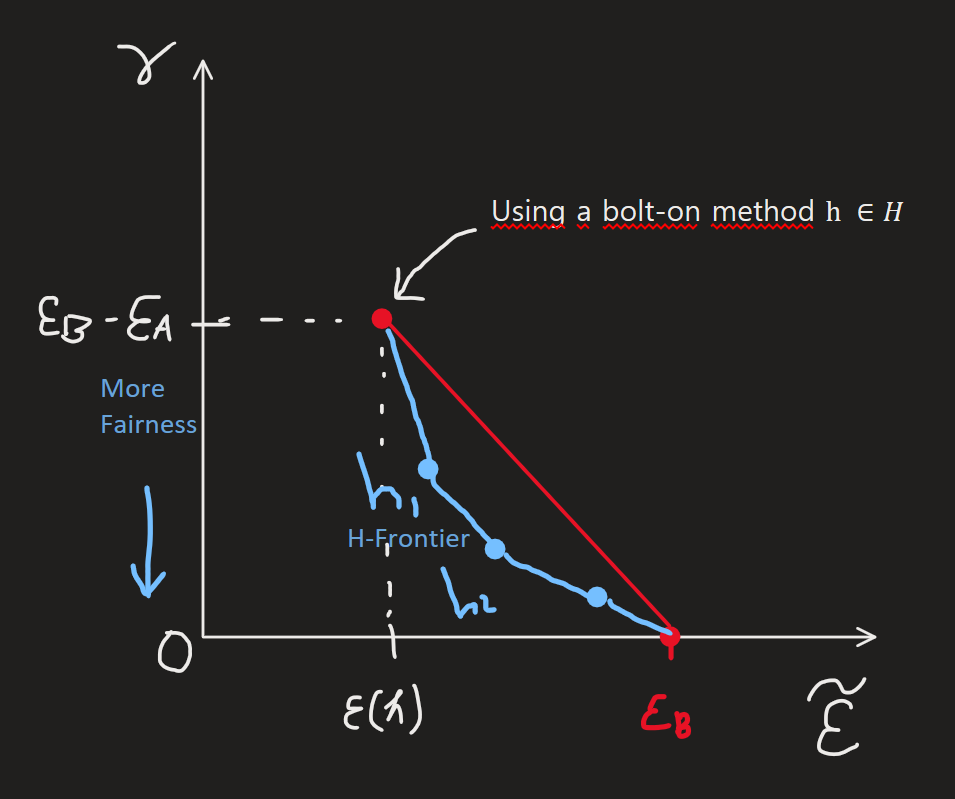 γ
Using a bolt-on method h ∈ H
ε_B - ε_A
More
Fairness
h₁
H-Frontier
h₂
0
ε(h)
ε_B
ε̃